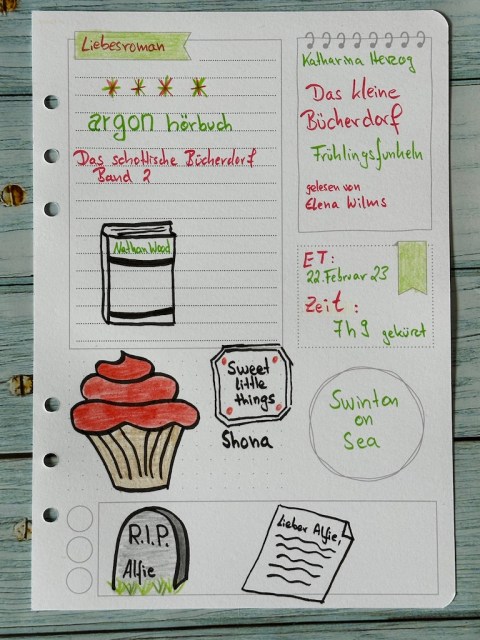 Liebesroman
argon hörbuch
Das schottische Bücherdorf
Band 2
Nathan Wood
Katharina Herzog
Das kleine
Bücherdorf
Frühlingsfunkeln
gelesen von
Elena Wilms
ET:
22. Februar 23
Zeit:
7h 9 gekürzt
Sweet
little
things
Shona
Swinton
on
Sea
R.I.P.
Alfie
Lieber Alfie,